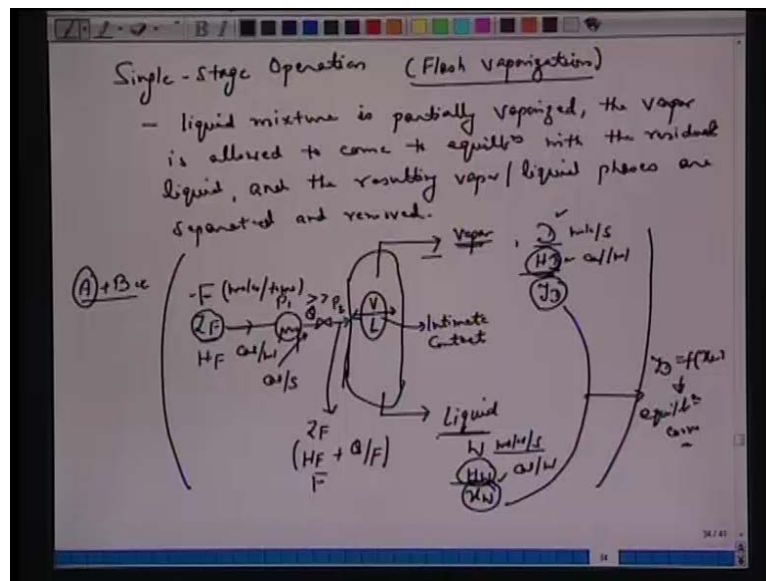 Single-Stage Operation (Flash Vaporization)
- liquid mixture is partially vaporized, the vapor
is allowed to come to equillbm with the residual
liquid, and the resulting vapor/liquid phases are
separated and removed.
(A)+B
F (moles/time)
ZF
HF cal/mol
P1 >> P2
Q
cal/s
V
L
Intimate
Contact
Vapor, D mole/s
HD cal/mol
yD
ZF
(HF + Q/F)
F
Liquid
W moles/s
HW
xW
yD = f(xw)
equillbm
curve
34/41
34